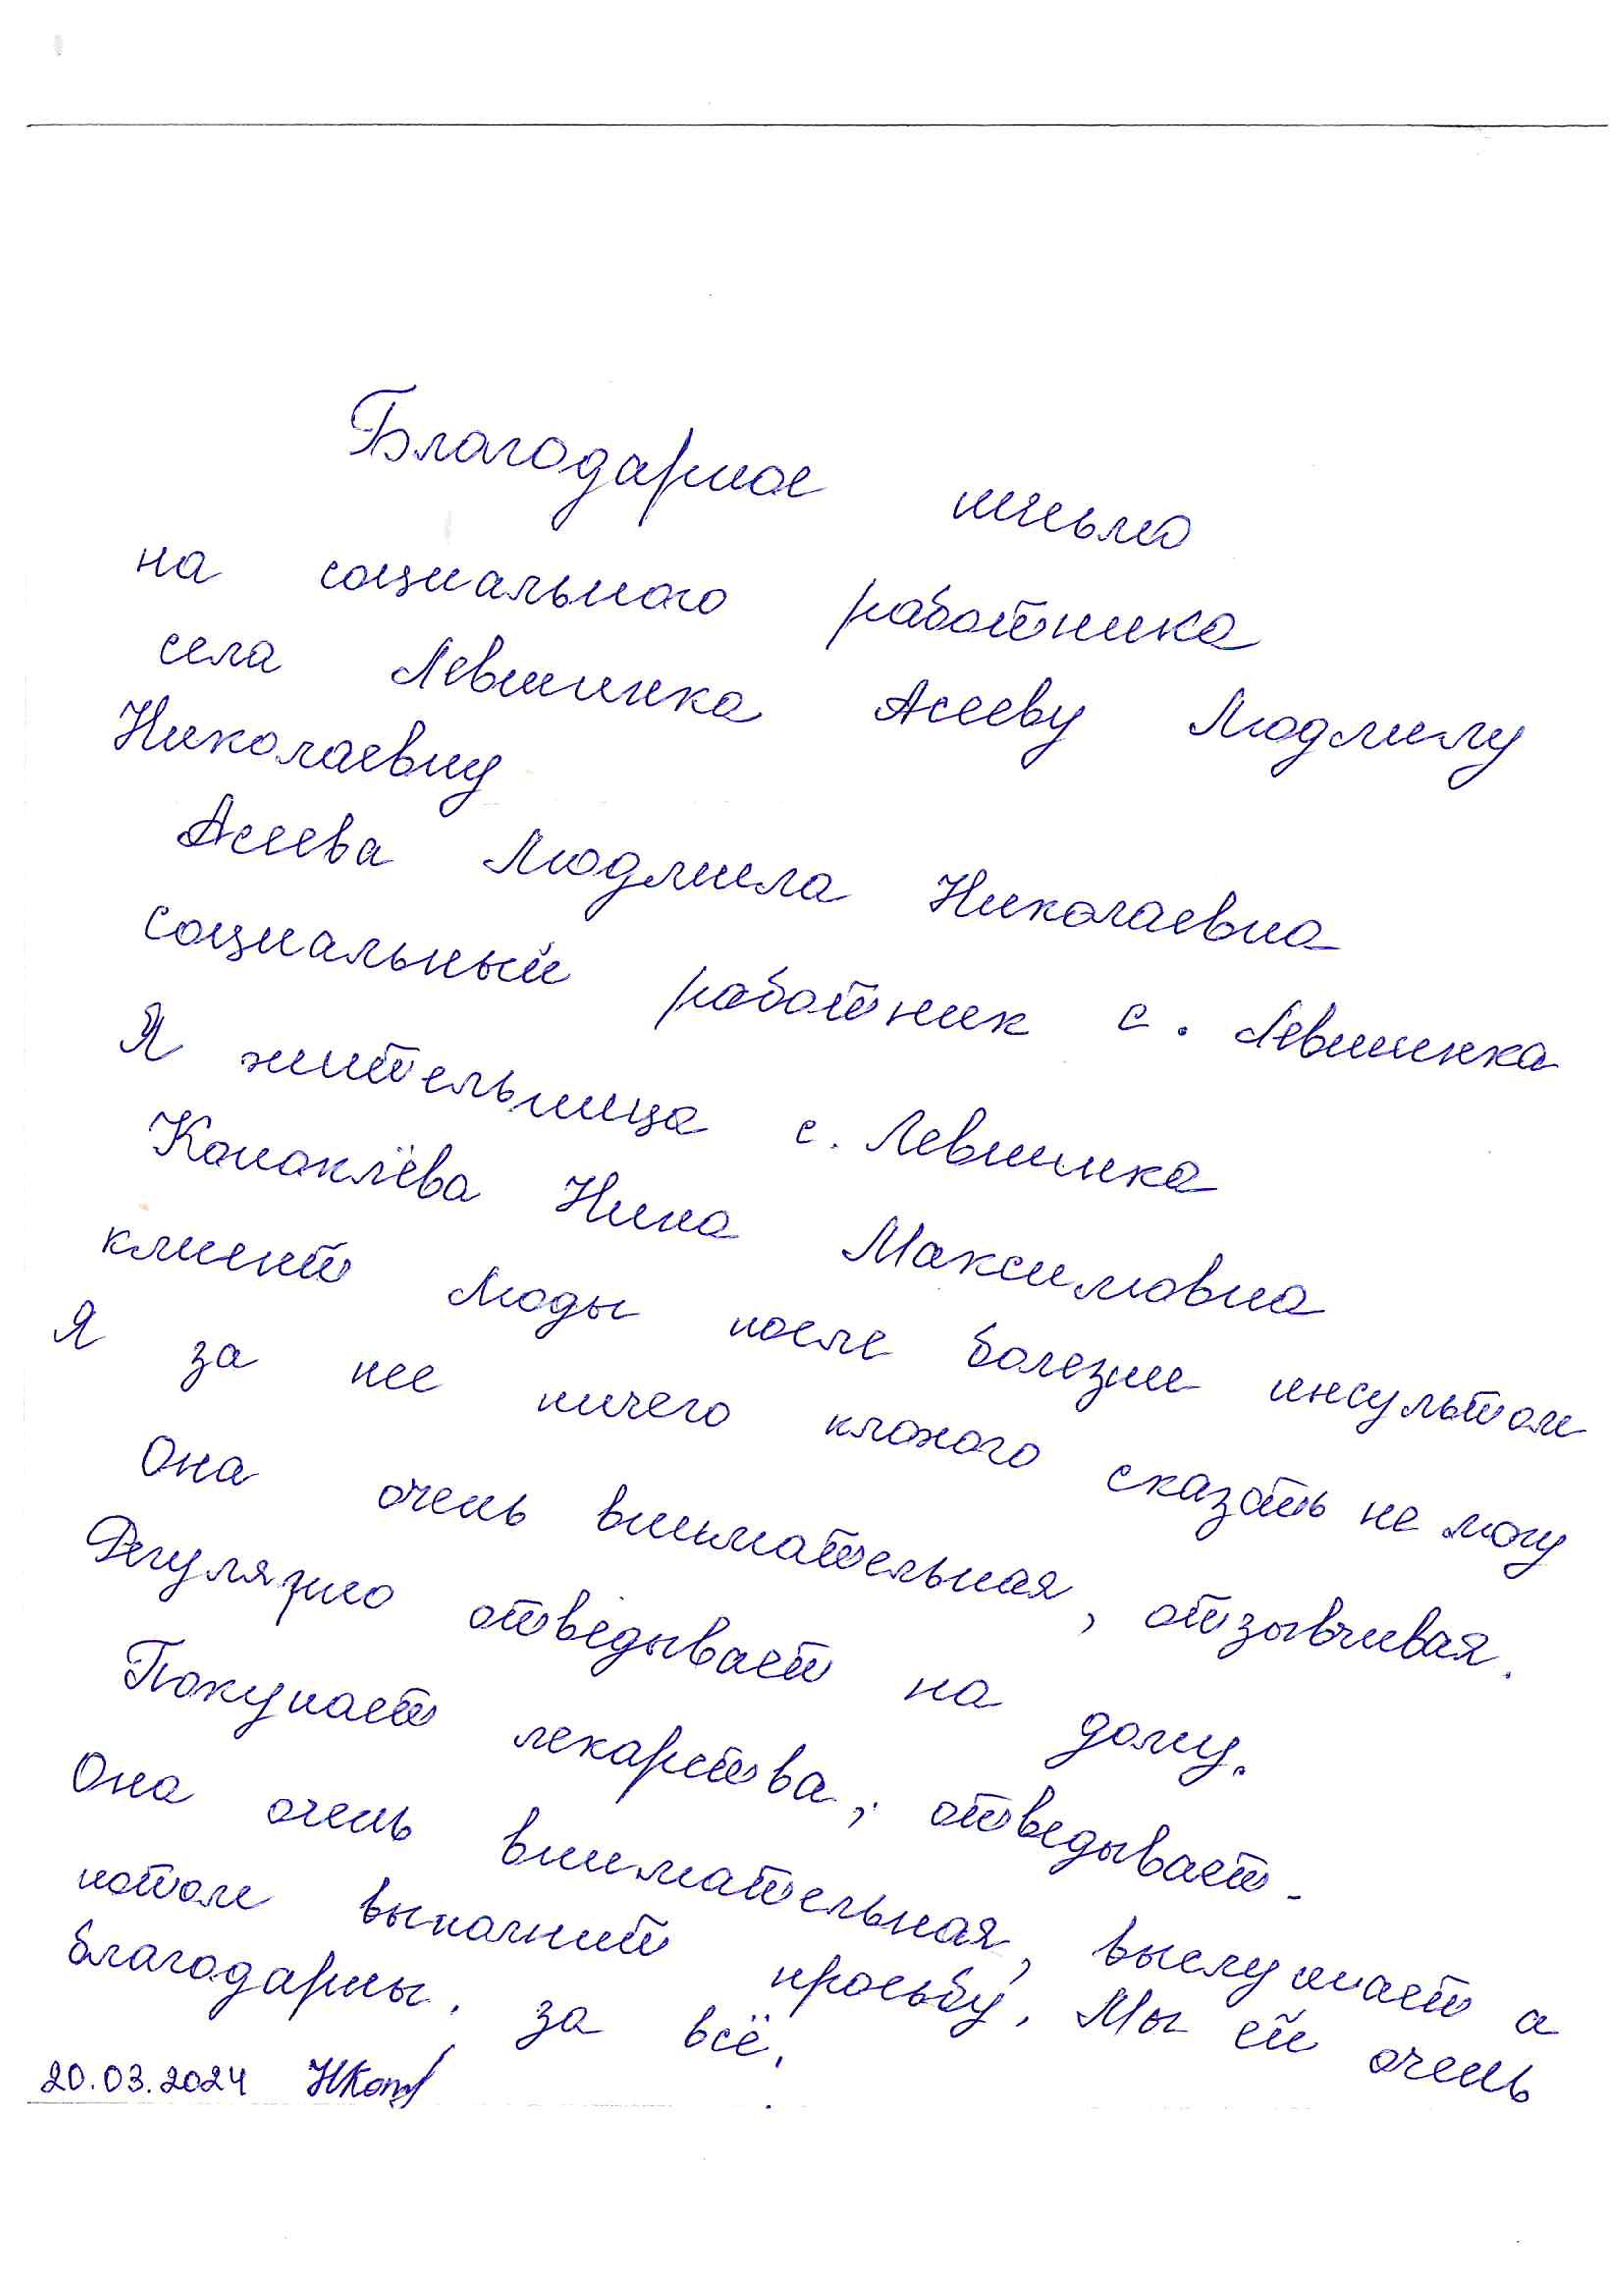 Благодарное письмо
на социального работника
села Левшинка Асееву Людмилу
Николаевну
Асеева Людмила Николаевна
социальный работник с. Левшинка
Я жительница с. Левшинка
Коноклёва Нина Максимовна
клиент Люды после болезни инсультом
Я за нее ничего плохого сказать не могу
Она очень внимательная, отзывчивая.
Регулярно отведывает на дому.
Покупает лекарства, отведывает.
Она очень внимательная, выслушает а
потом выполнит просьбу. Мы ей очень
благодарны. за всё.
20.03.2024